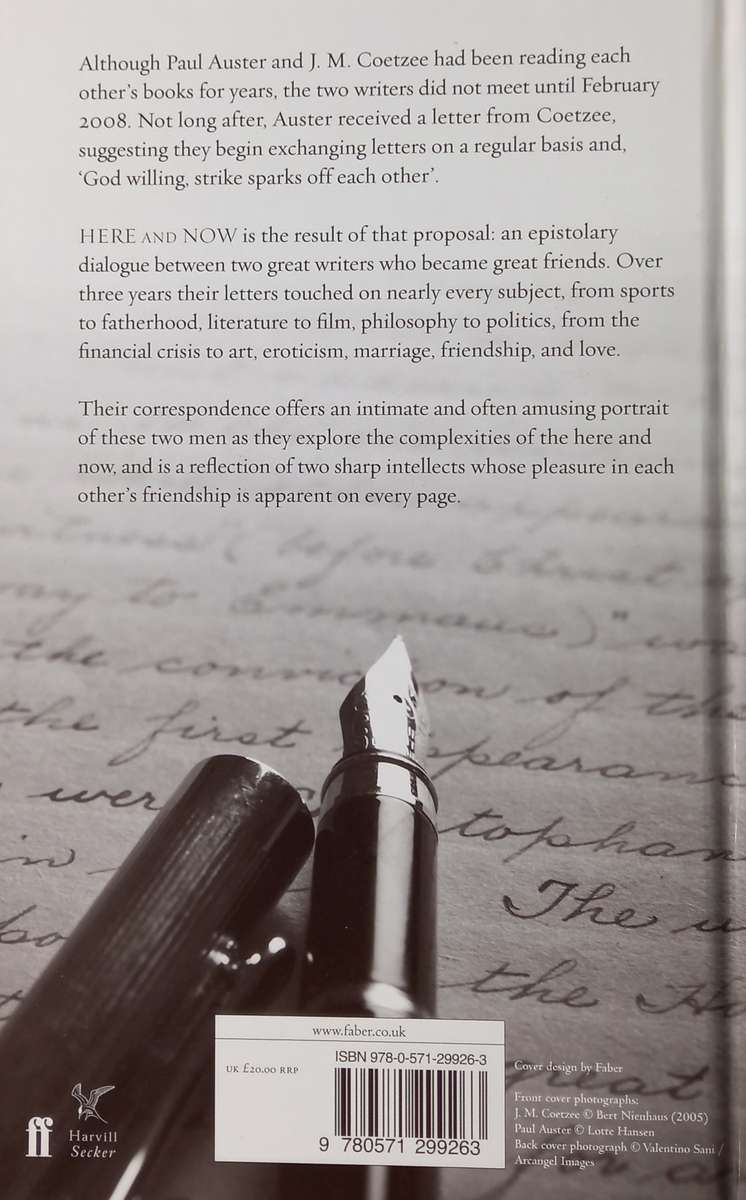 Although Paul Auster and J. M. Coetzee had been reading each
other's books for years, the two writers did not meet until February
2008. Not long after, Auster received a letter from Coetzee,
suggesting they begin exchanging letters on a regular basis and,
‘God willing, strike sparks off each other’.
HERE AND NOW is the result of that proposal: an epistolary
dialogue between two great writers who became great friends. Over
three years their letters touched on nearly every subject, from sports
to fatherhood, literature to film, philosophy to politics, from the
financial crisis to art, eroticism, marriage, friendship, and love.
Their correspondence offers an intimate and often amusing portrait
of these two men as they explore the complexities of the here and
now, and is a reflection of two sharp intellects whose pleasure in each
other's friendship is apparent on every page.
(before Christ
way to Emmaus)" 
the conviction of the
the first appearanc
wer tophan
in
The
the
great
www.faber.co.uk
ISBN 978-0-571-29926-3
UK £20.00 RRP
9 780571 299263
ff
Harvill
Secker
Cover design by Faber
Front cover photographs:
J. M. Coetzee © Bert Nienhaus (2005)
Paul Auster © Lotte Hansen
Back cover photograph © Valentino Sani /
Arcangel Images